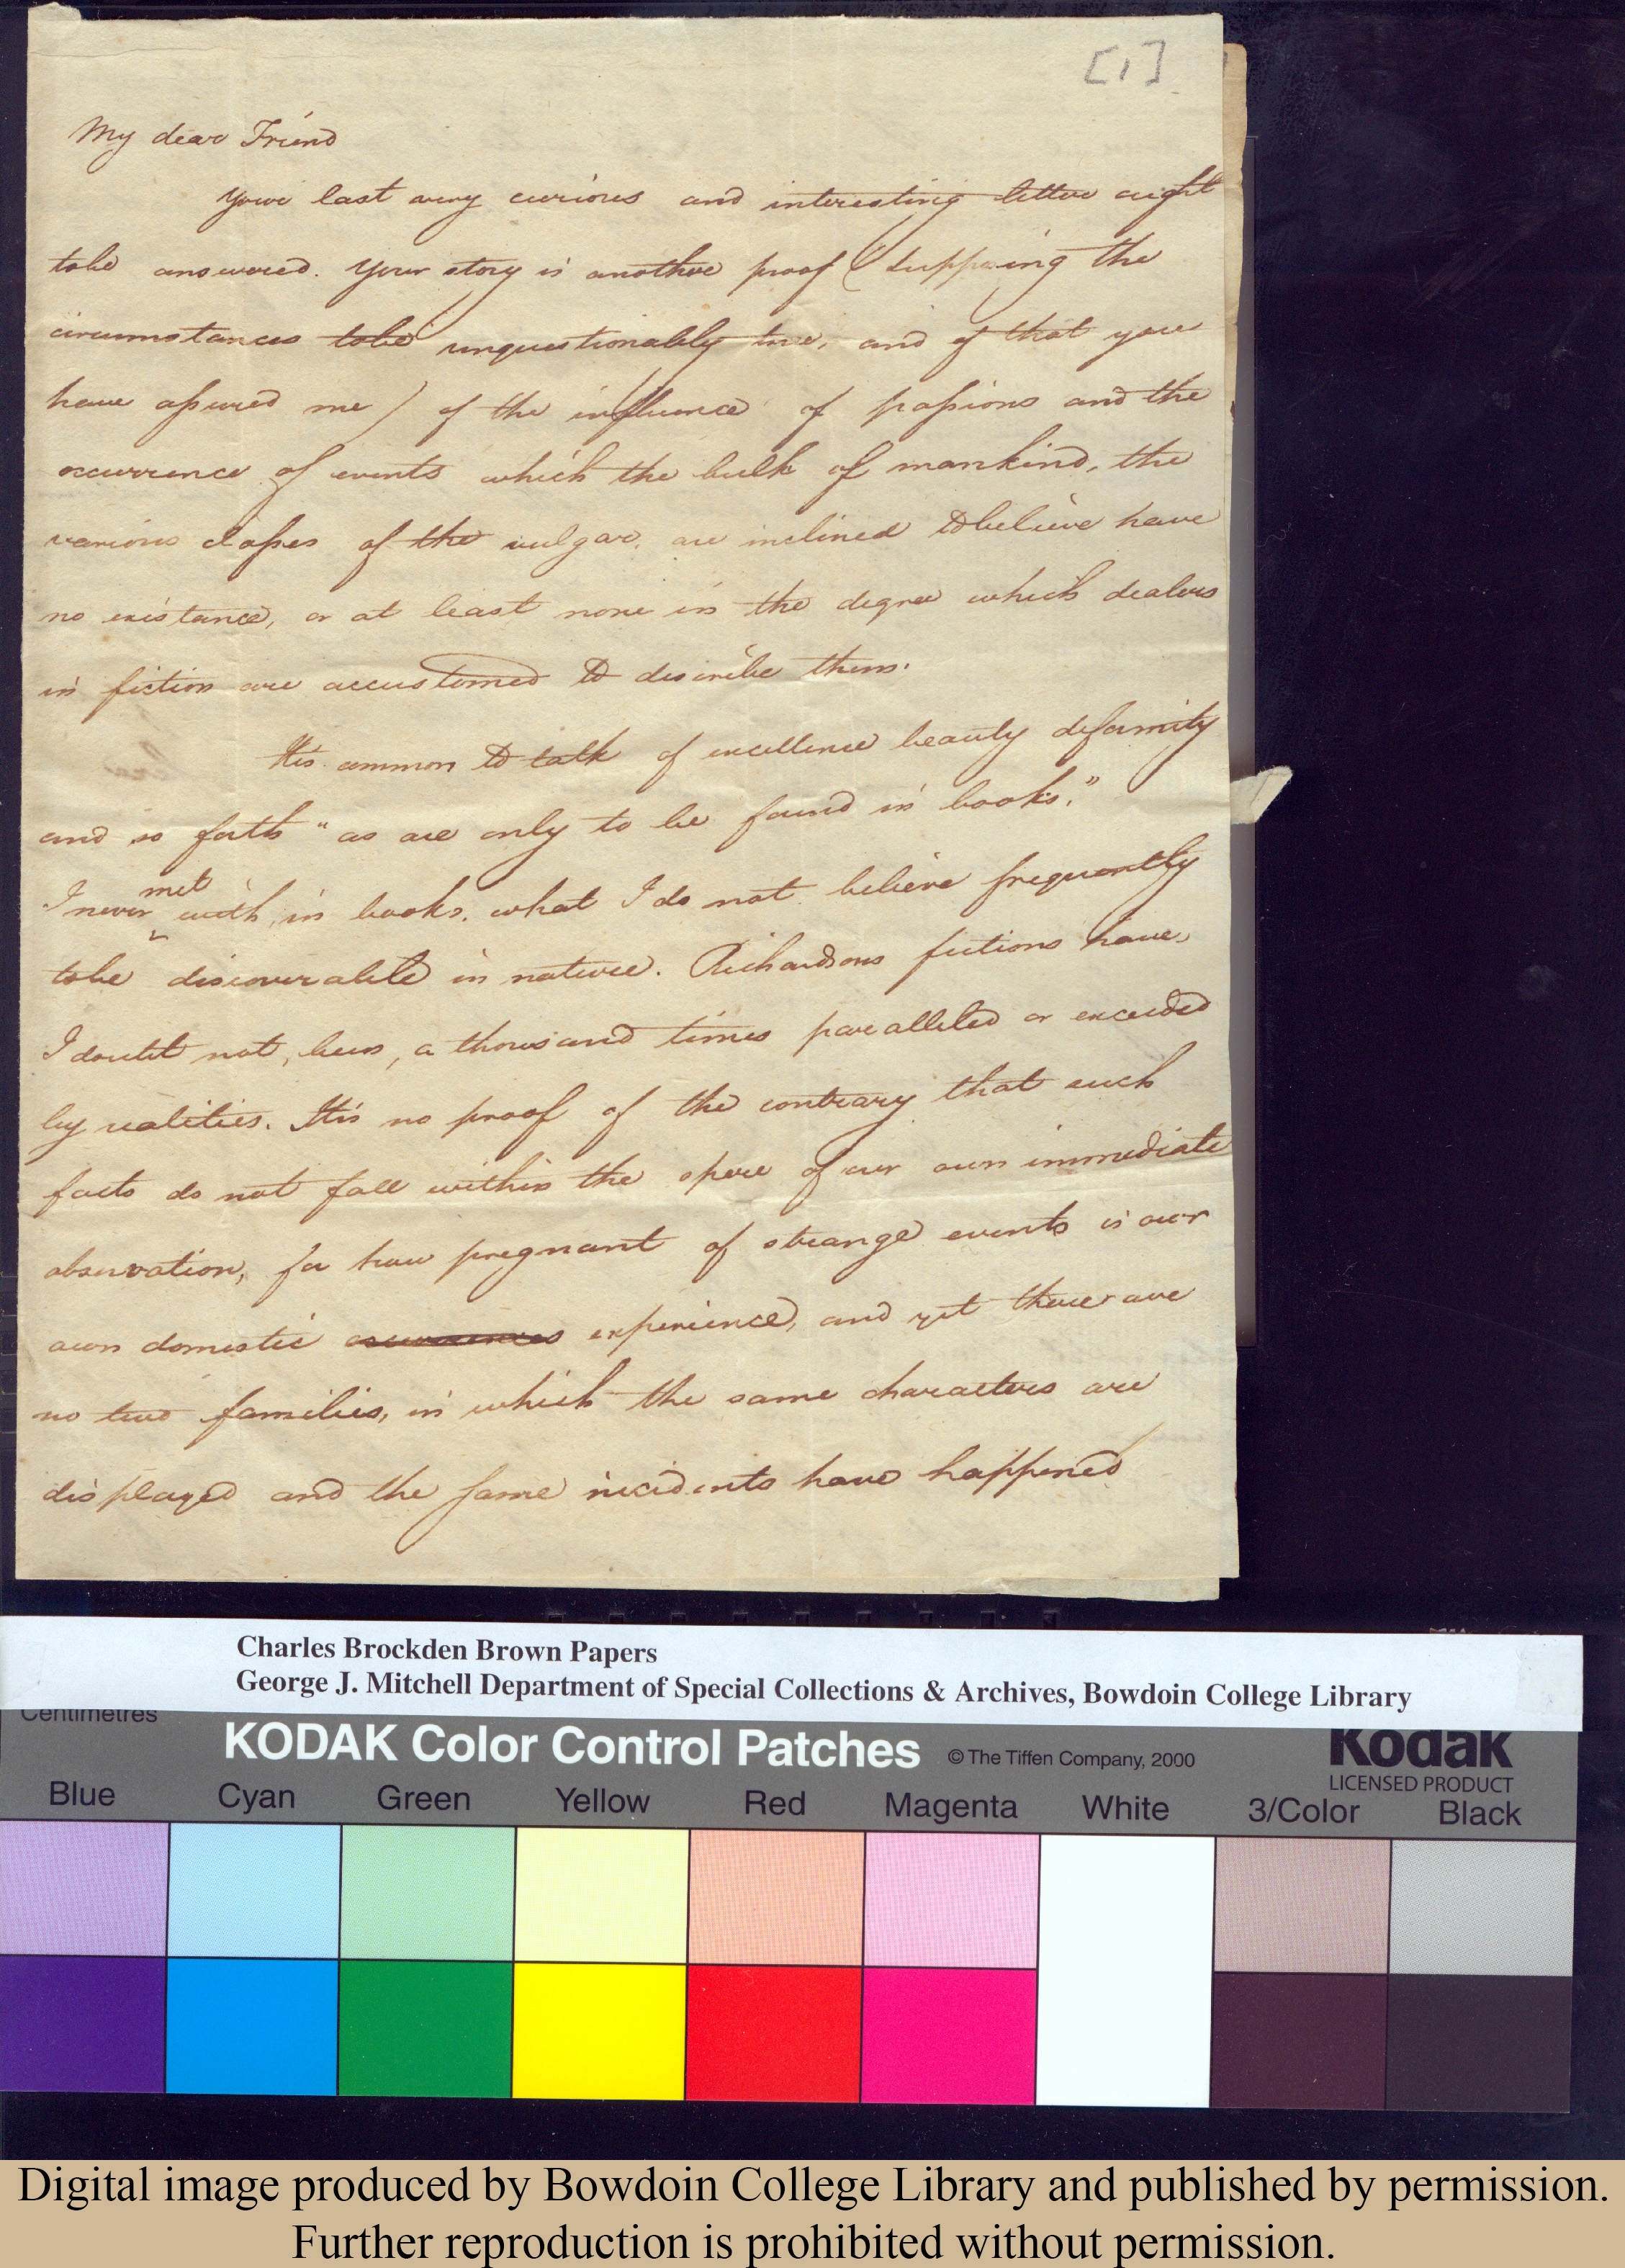 [1]
My dear Friend
Your last very curious and interesting letter aught
tobe answered. Your story is another proof (supposing the
circumstances tobe unquestionably true, and of that you
have assured me) of the influence of passions and the
occurrence of events which the bulk of mankind, the
various classes of the vulgar, are inclined to believe have
no existance, or at least none in the degree which dealers
in fiction are accustomed to describe them.
Itis common to talk of excellence beauty deformity
and so forth "as are only to be found in books."
I never met with, in books, what I do not believe frequently
tobe discoverable in nature. Richardsons fictions have,
I doubt not, been, a thousand times paralleled or exceeded
by realities. Itis no proof of the contrary that such
facts do not fall within the spere of our own immediate
observation, for how pregnant of strange events is our
own domestic occurrences experience, and yet there are
no two families, in which the same characters are
displayed and the same incidents have happened
Charles Brockden Brown Papers
George J. Mitchell Department of Special Collections & Archives, Bowdoin College Library
Centimetres
KODAK Color Control Patches © The Tiffen Company, 2000 Kodak
LICENSED PRODUCT
Blue Cyan Green Yellow Red Magenta White 3/Color Black
Digital image produced by Bowdoin College Library and published by permission.
Further reproduction is prohibited without permission.